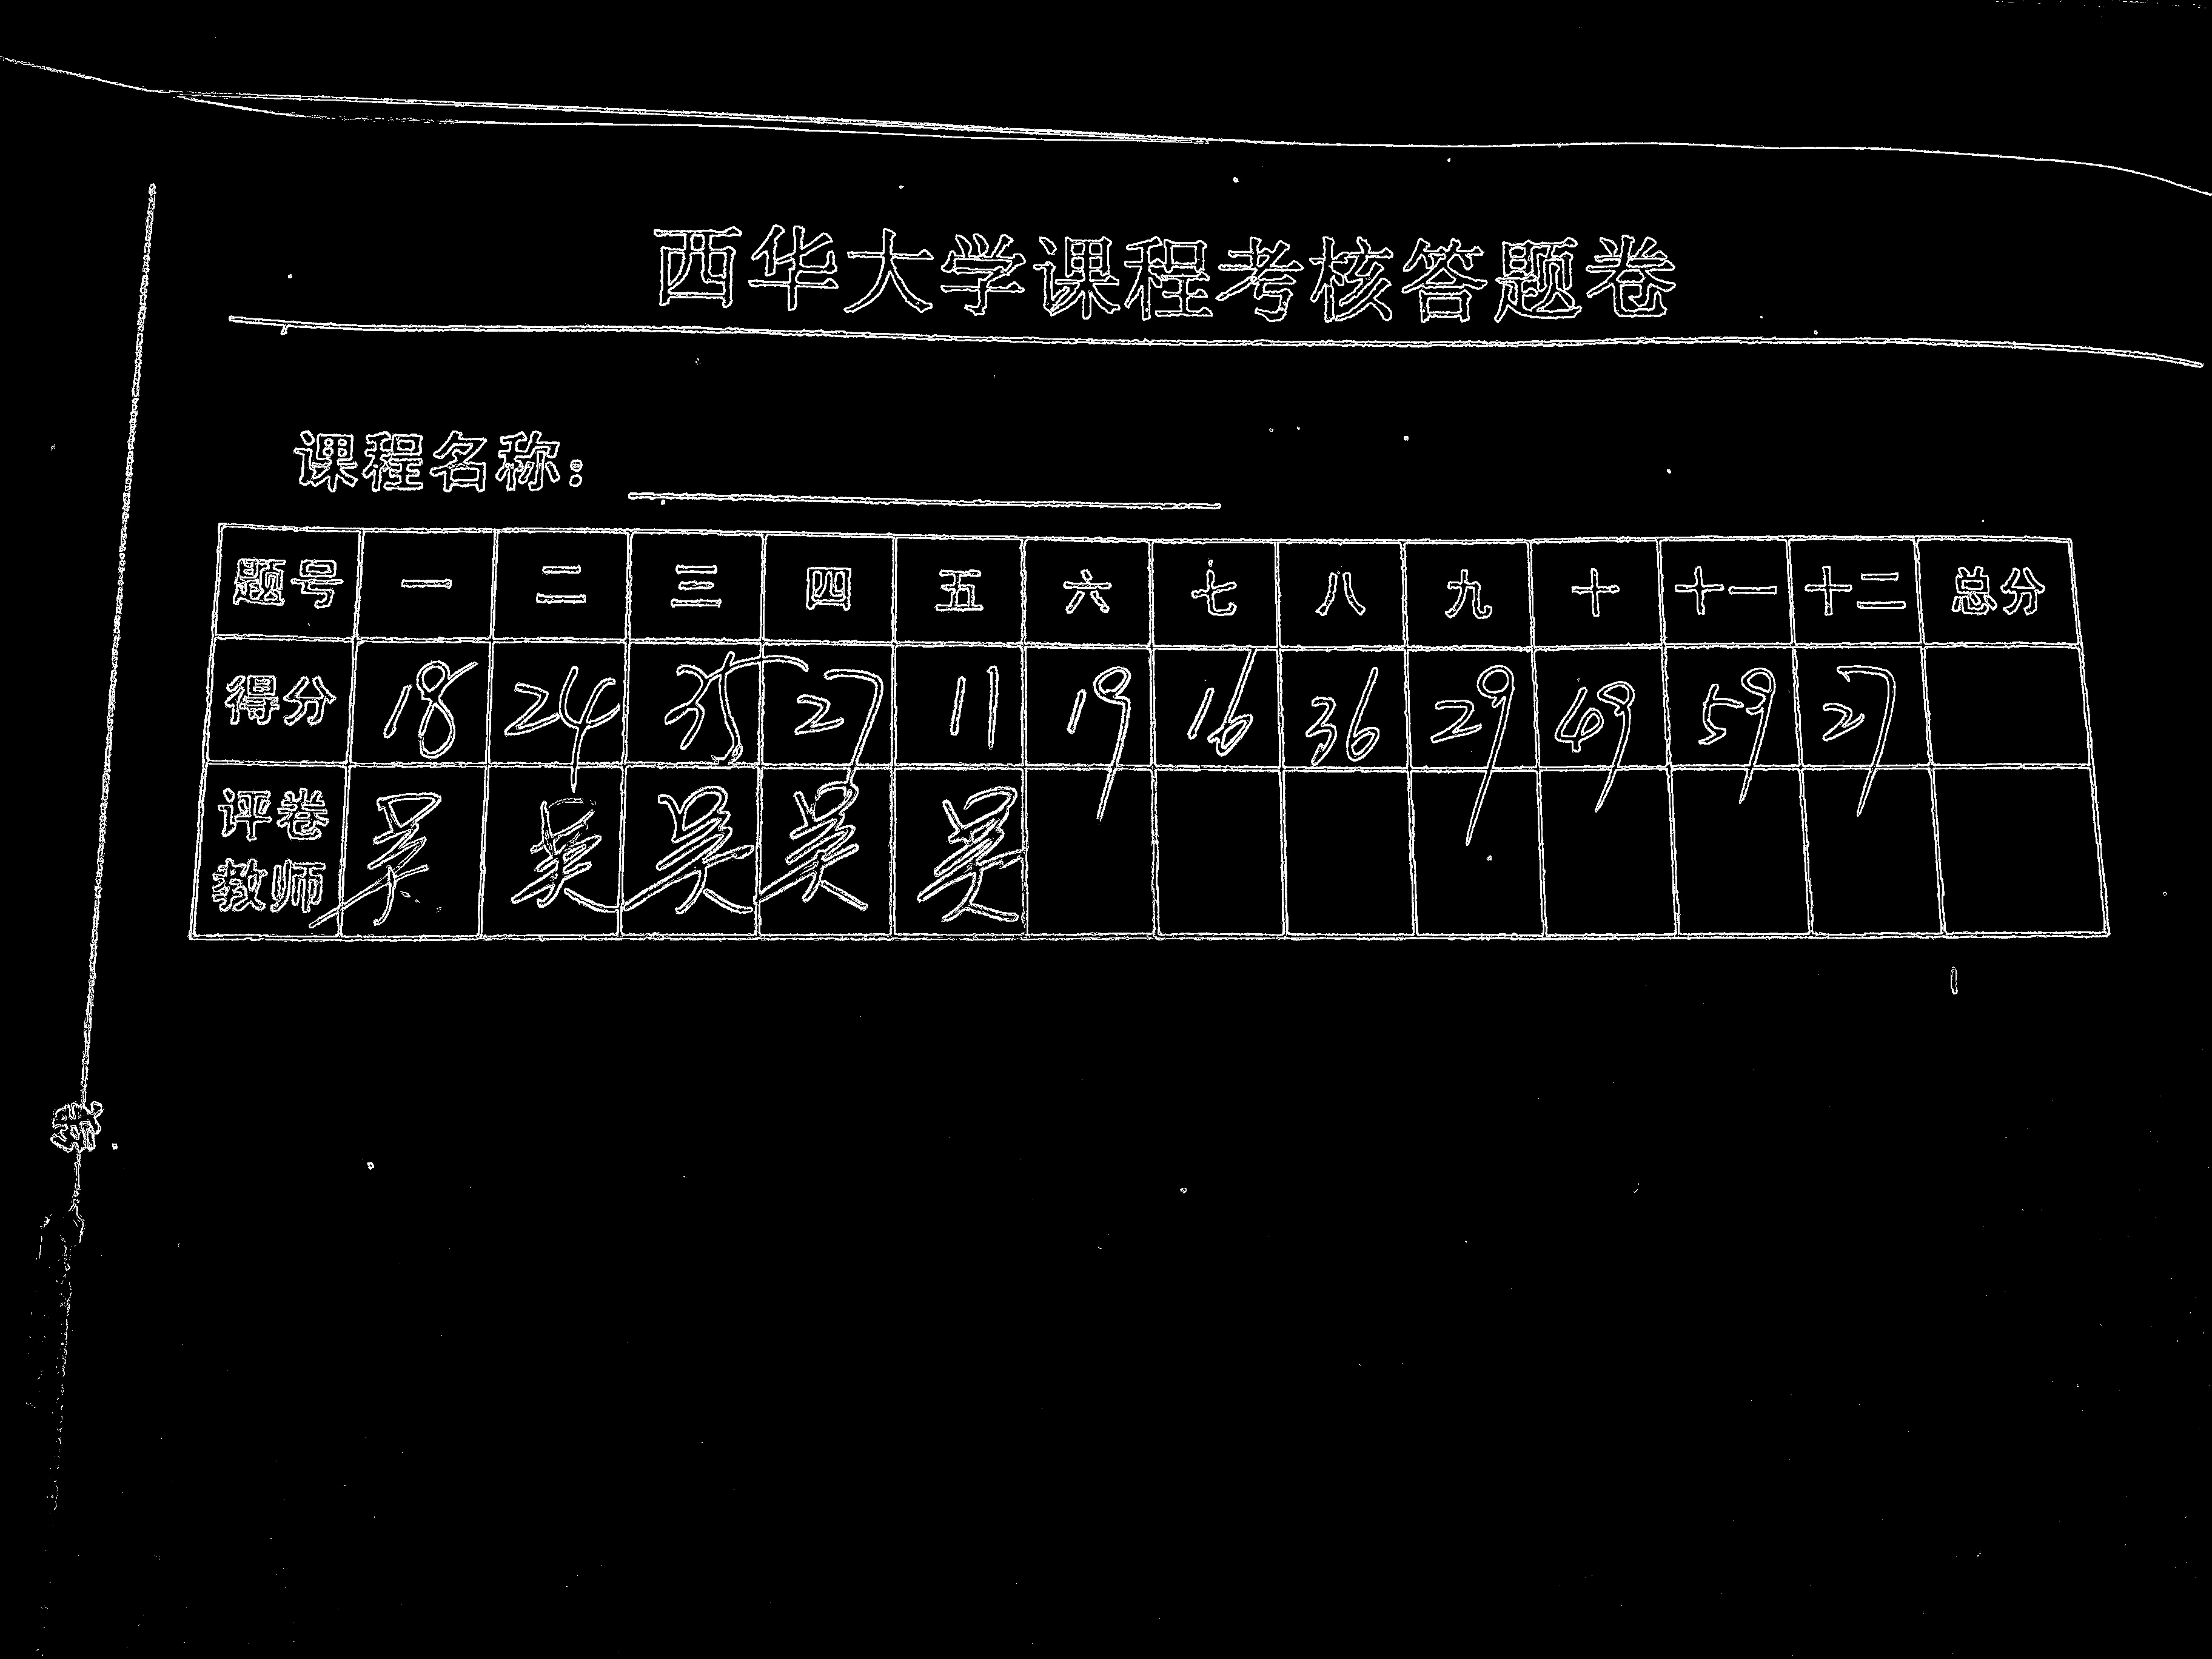 西华大学课程考核答题卷
课程名称:
题号 一 二 三 四 五 六 七 八 九 十 十一 十二 总分
得分 18 24 35 27 11 19 16 36 29 49 59 27
评卷教师 吴 吴 吴 吴 吴